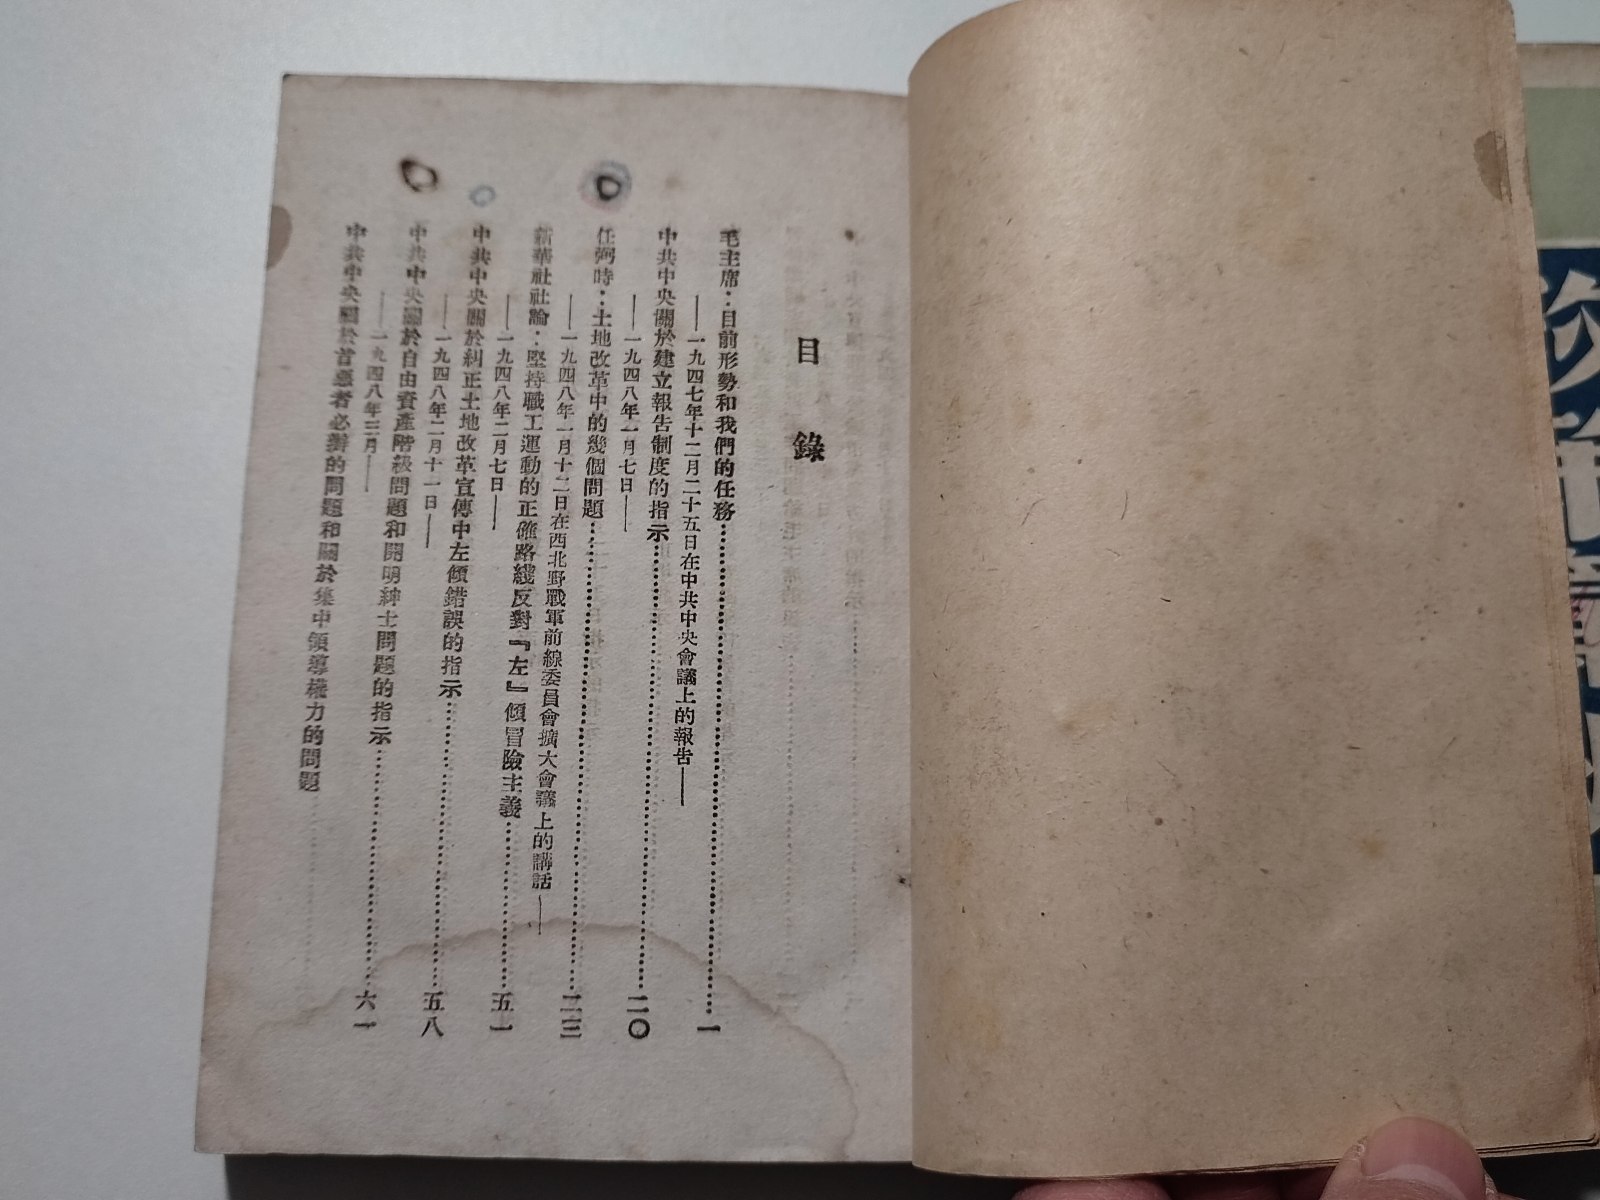 目錄
毛主席：目前形勢和我們的任務……一
——一九四七年十二月二十五日在中共中央會議上的報告——
中共中央關於建立報告制度的指示……二〇
——一九四八年一月七日——
任弼時：土地改革中的幾個問題……二三
——一九四八年一月十二日在西北野戰軍前線委員會擴大會議上的講話——
新華社社論：堅持職工運動的正確路綫反對『左』傾冒險主義……五一
——一九四八年二月七日——
中共中央關於糾正土地改革宣傳中左傾錯誤的指示……五八
——一九四八年二月十一日——
中共中央關於自由資產階級問題和開明紳士問題的指示……六一
——一九四八年三月——
中共中央關於首惡者必辦的問題和關於集中領導權力的問題